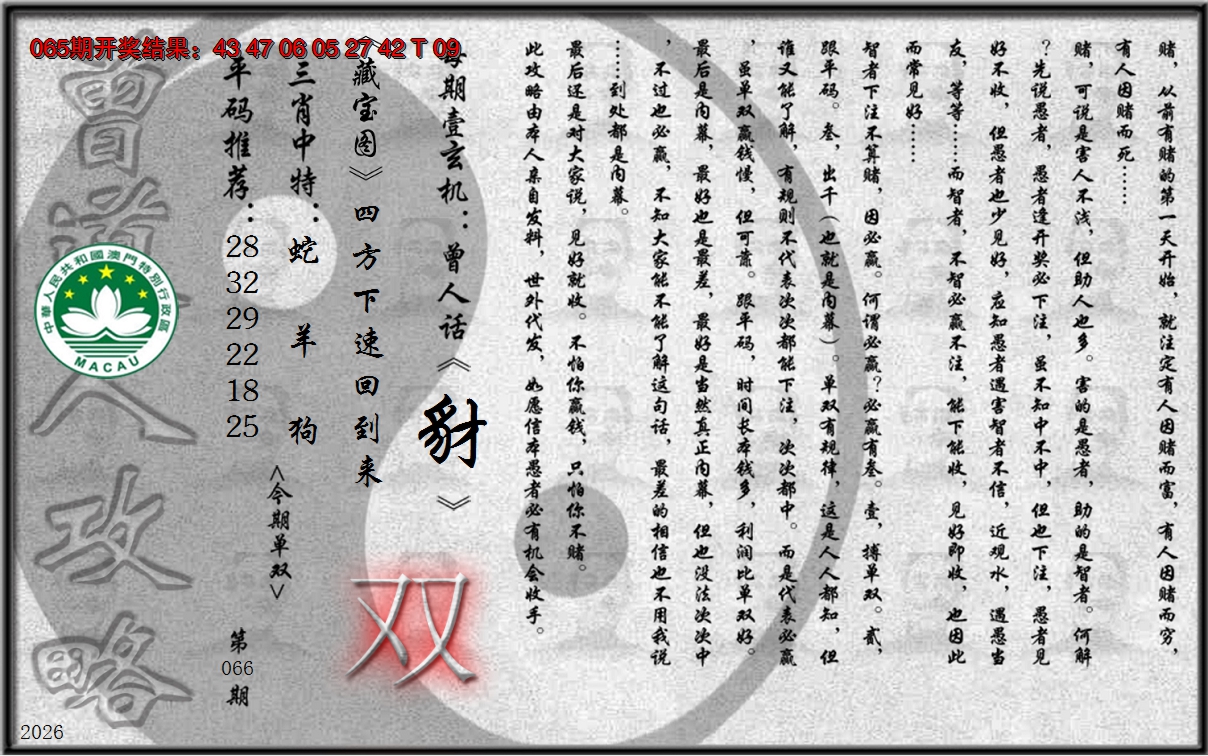 065期开奖结果：43 47 06 05 27 42 T 09
赌，从前有赌的第一天开始，就注定有人因赌而富，有人因赌而穷，
有人因赌而死……
赌，可说是害人不浅，但助人也多。害的是愚者，助的是智者。何解
？先说愚者，愚者逢开奖必下注，虽不知中不中，但也下注，愚者见
好不收，但愚者也少见好，应知愚者遇害智者不信，近观水，遇愚当
友，等等……而智者，不智必赢不注，能下能收，见好即收，也因此
而常见好……
智者下注不算赌，因必赢。何谓必赢？必赢有叁。壹，搏单双。贰，
跟平码。叁，出千（也就是内幕）。单双有规律，这是人人都知，但
谁又能了解，有规则不代表次次都能下注，次次都中。而是代表必赢
，虽单双赢钱慢，但可靠。跟平码，时间长本钱多，利润比单双好。
最后是内幕，最好也是最差，最好是当然真正内幕，但也没法次次中
，不过也必赢，不知大家能不能了解这句话，最差的相信也不用我说
……到处都是内幕。
最后还是对大家说，见好就收。不怕你赢钱，只怕你不赌。
此攻略由本人亲自发料，世外代发，如愿信本愚者必有机会收手。
每期壹玄机：曾人话《豺》
《藏宝图》四方下速回到来
双
三肖中特：蛇 羊 狗
<今期单双>
平码推荐：28 32 29 22 18 25
第066期
曾道人攻略
中華人民共和國澳門特別行政區
MACAU
2026